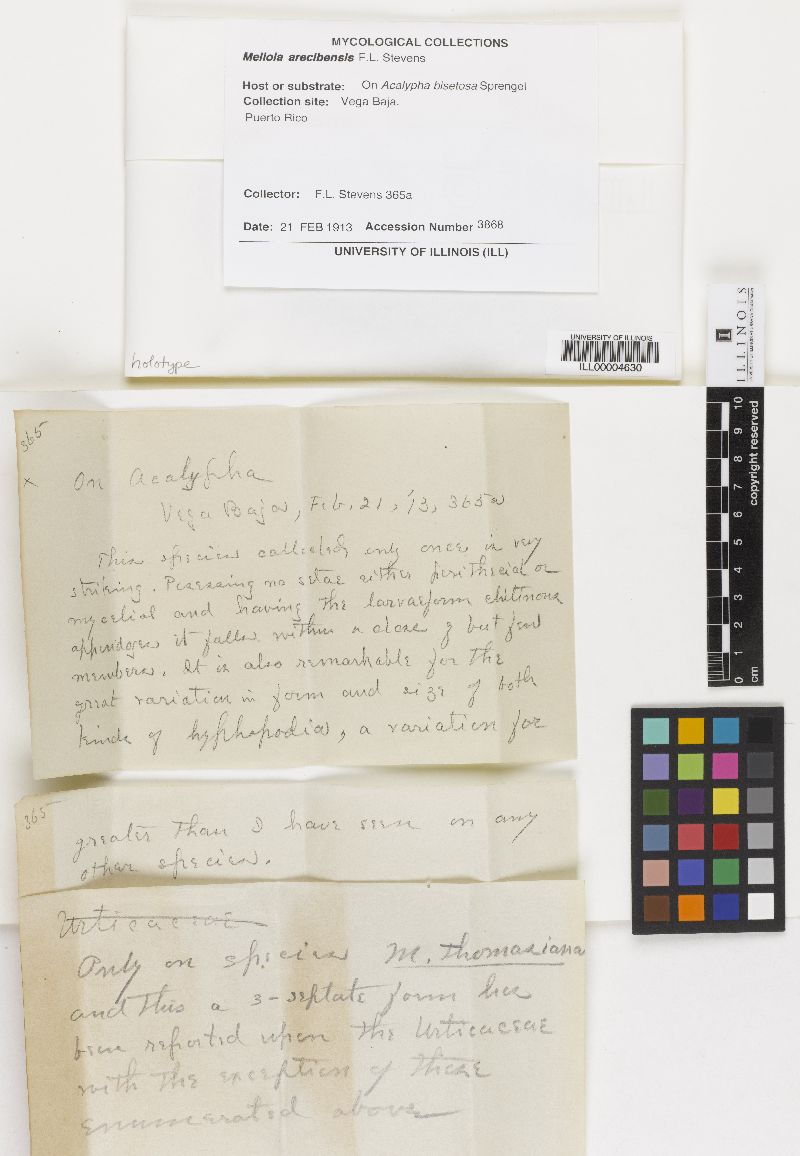 MYCOLOGICAL COLLECTIONS
Meliola arecibensis F.L. Stevens
Host or substrate: On Acalypha bisetosa Sprengel
Collection site: Vega Baja.
Puerto Rico
Collector: F.L. Stevens 365a
Date: 21 FEB 1913 Accession Number 3868
UNIVERSITY OF ILLINOIS (ILL)
holotype
UNIVERSITY OF ILLINOIS
ILL00004630
ILLINOIS
10 9 8 7 6 5 4 3 2 1 0 cm
copyright reserved
365
x
On Acalypha
Vega Baja, Feb. 21, '13, 365a
This species collected only once is very
striking. Possessing no setae either perithecial or
mycelial and having the larvaeform chitinous
appendages it falls within a class of but few
members. It is also remarkable for the
great variation in form and size of both
kinds of hyphopodia, a variation far
365
greater than I have seen on any
other species.
Urticaceae
Only on species M. thomasiana
and this a 3-septate form has
been reported upon the Urticaceae
with the exception of those
enumerated above